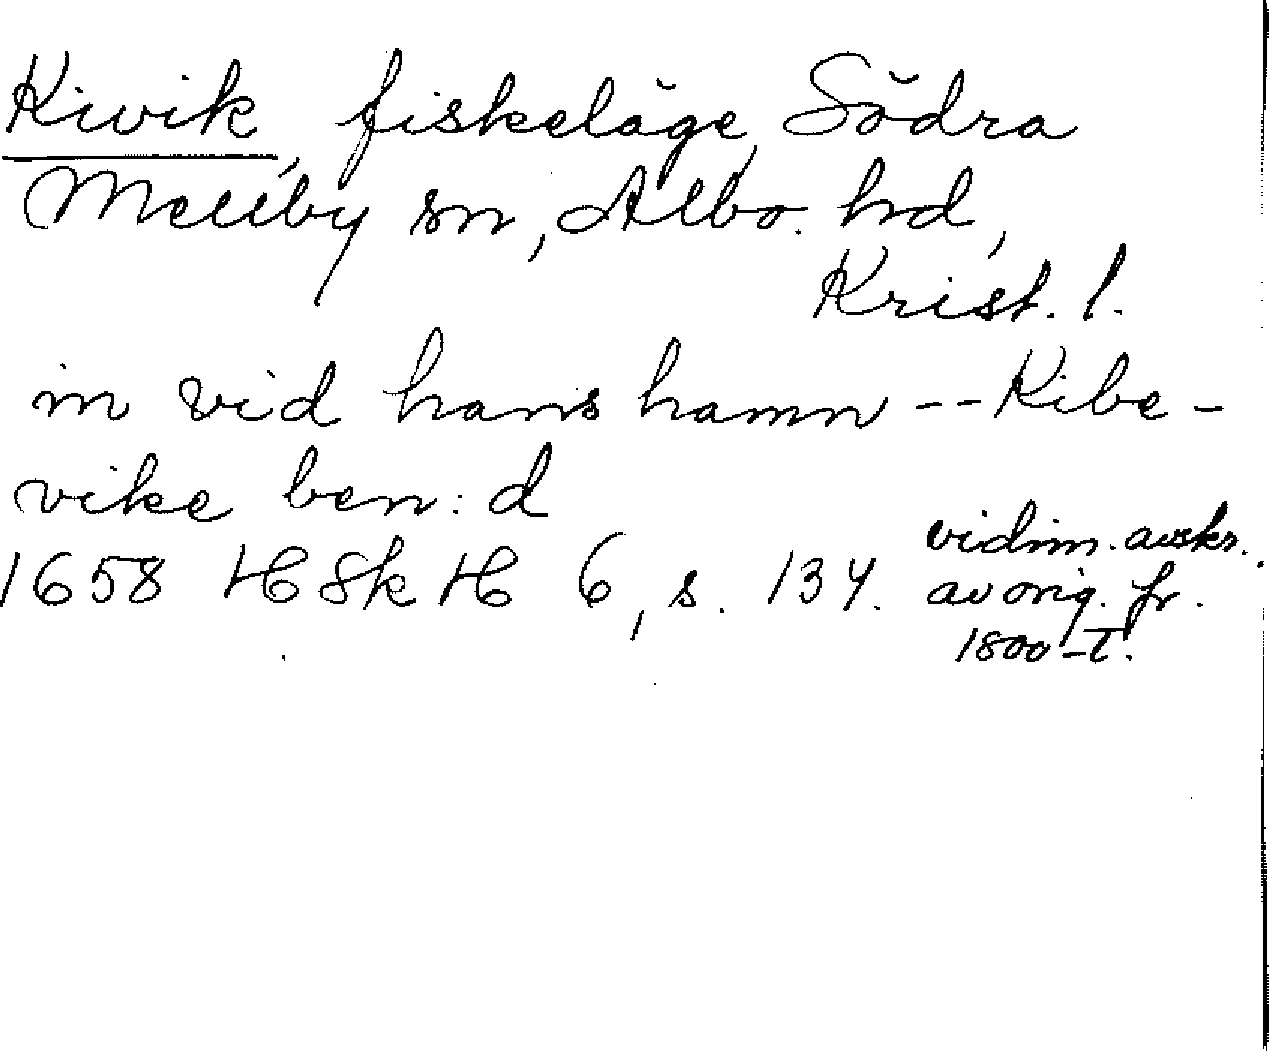 Kivik, fiskeläge, Södra
Mellby sn, Albo hd,
Krist. l.
in vid hans hamn -- Kibe-
vike ben:d
1658 HSkH 6, s. 134.
vidim. avskr.
av orig. fr.
1800-t.